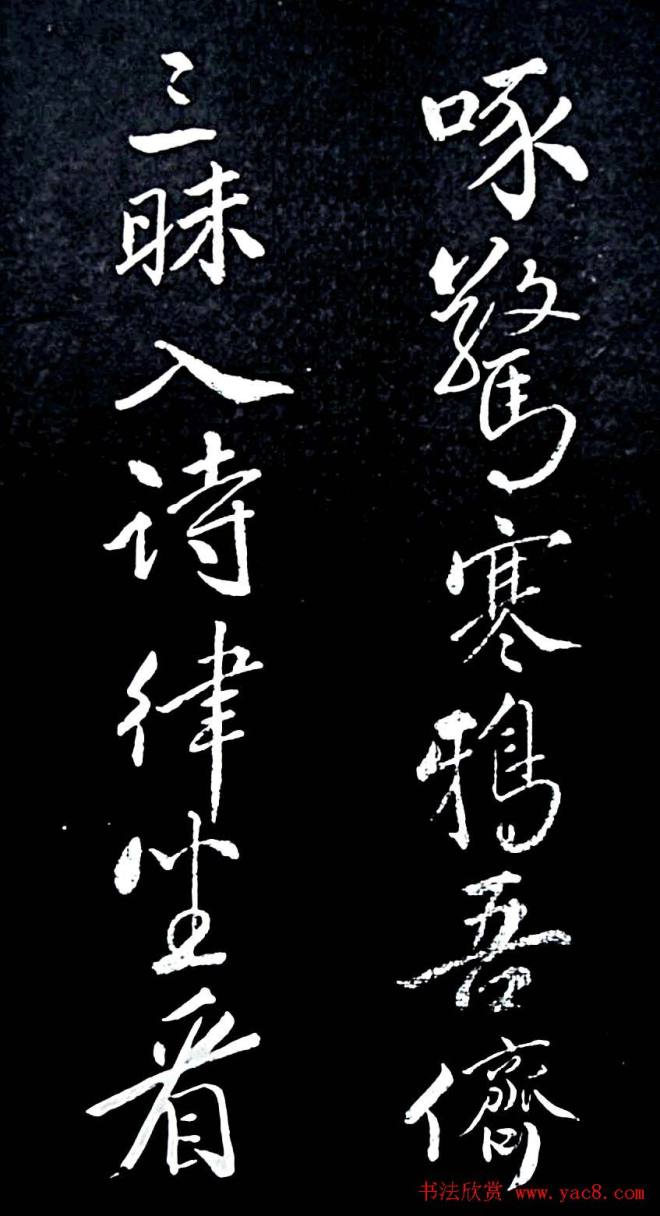 啄驚寒鴉吾儕
三昧入詩律坐看
书法欣赏 www.yac8.com